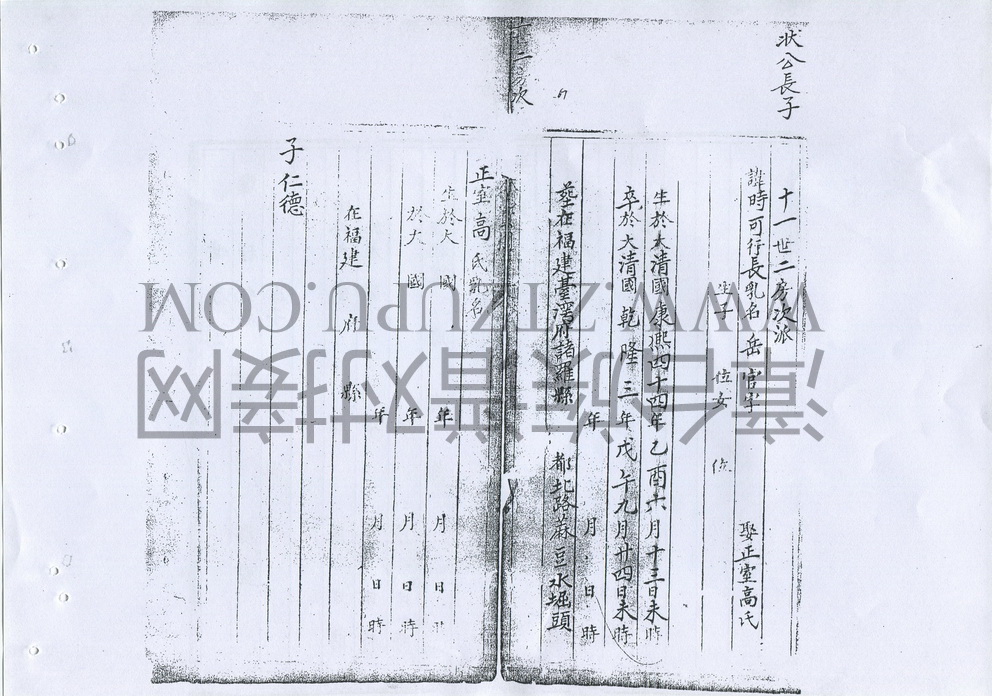 狀公長子
十一世二房次派
諱時可行長乳名岳官字 娶正室高氏
生子 位女 位
生於大清國康熙四十四年乙酉六月十三日未時
卒於大清國乾隆三年戊午九月廿四日未時
年 月 日 時
塟在福建臺灣府諸羅縣 都北路蔴豆水堀頭
二房次
正室高氏乳名
生於大 國 年 月 日 時
於大 國 年 月 日 時
年 月 日 時
在福建 府 縣
子仁德
漳台族谱对接网
WWW.ZTZUPU.COM